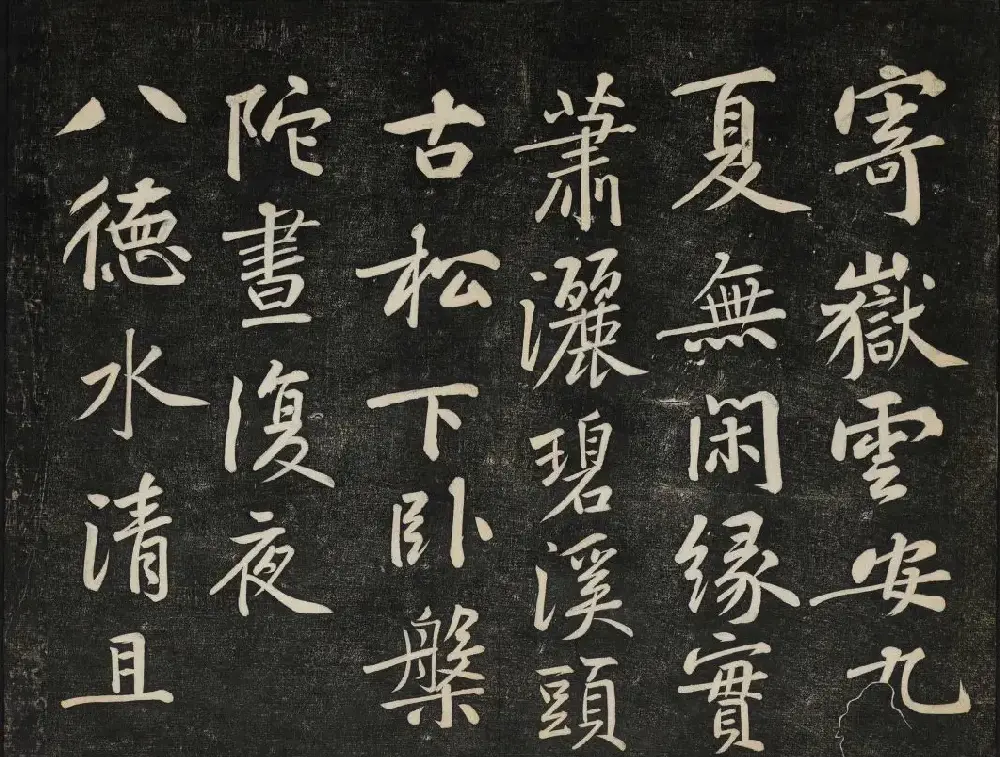 寄嶽雲安九
夏無闲縁實
蕭灑碧溪頭
古松下卧槃
陀晝復夜
八德水清且